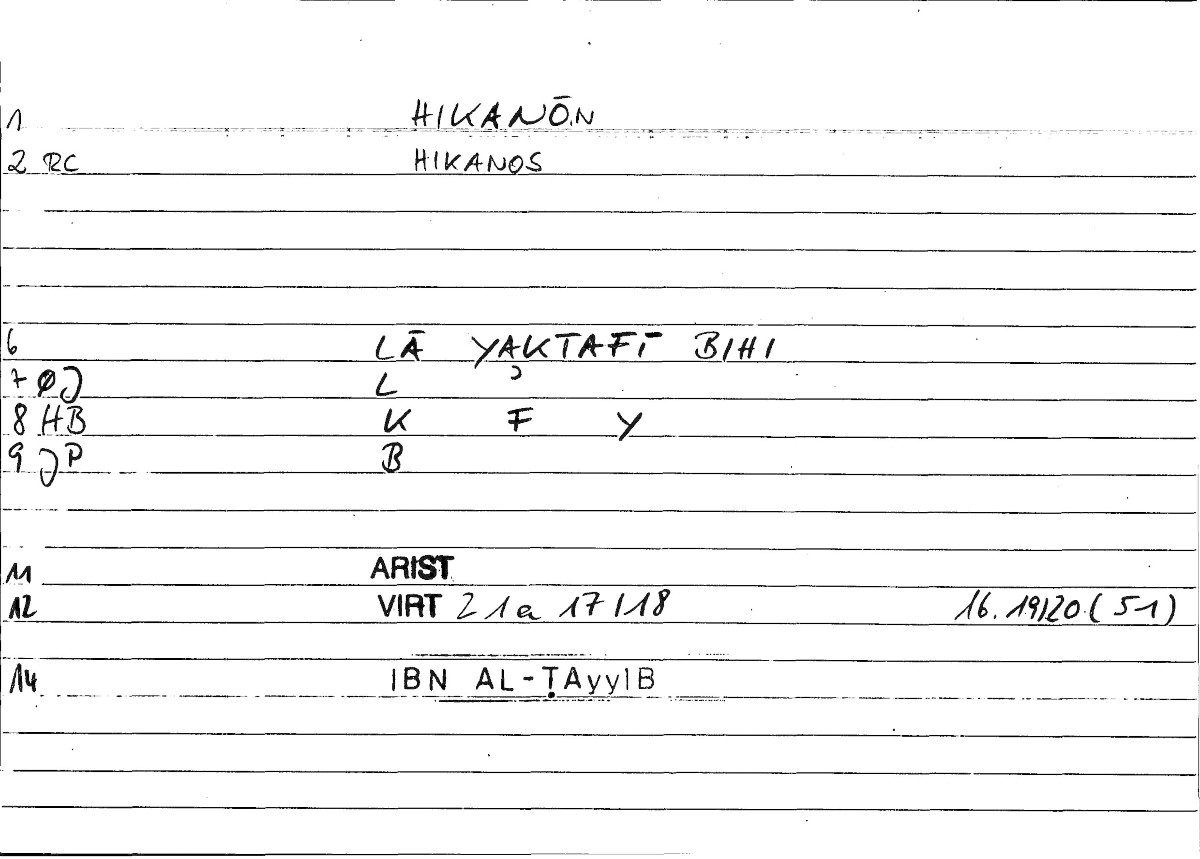 1 HIKANŌN
2 RC HIKANOS
6 LĀ YAKTAFĪ BIHI
7 ØJ L ʾ
8 HB K F Y
9 JP B
11 ARIST
12 VIRT 21a 17/18 16.19/20 (51)
14 IBN AL-ṬAyyIB